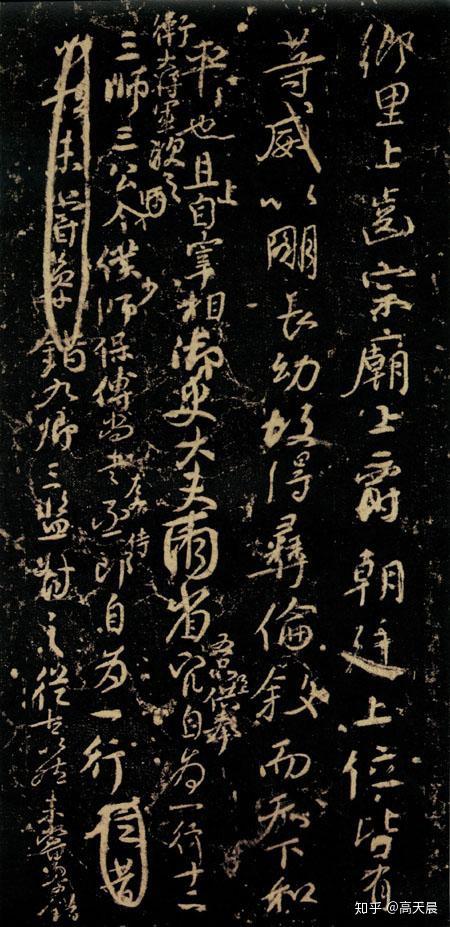 鄉里上齒宗廟上爵朝廷上位皆有
等威以明長幼故得彝倫敘而天下和
平也且上自宰相御史大夫兩省五品供奉官自為一行十二
衛大將軍次之
三師三公令僕少師保傅尚書左右丞侍郎自為一行
未嘗參錯九卿三監對之從古以然未嘗參錯
知乎 @高天晨